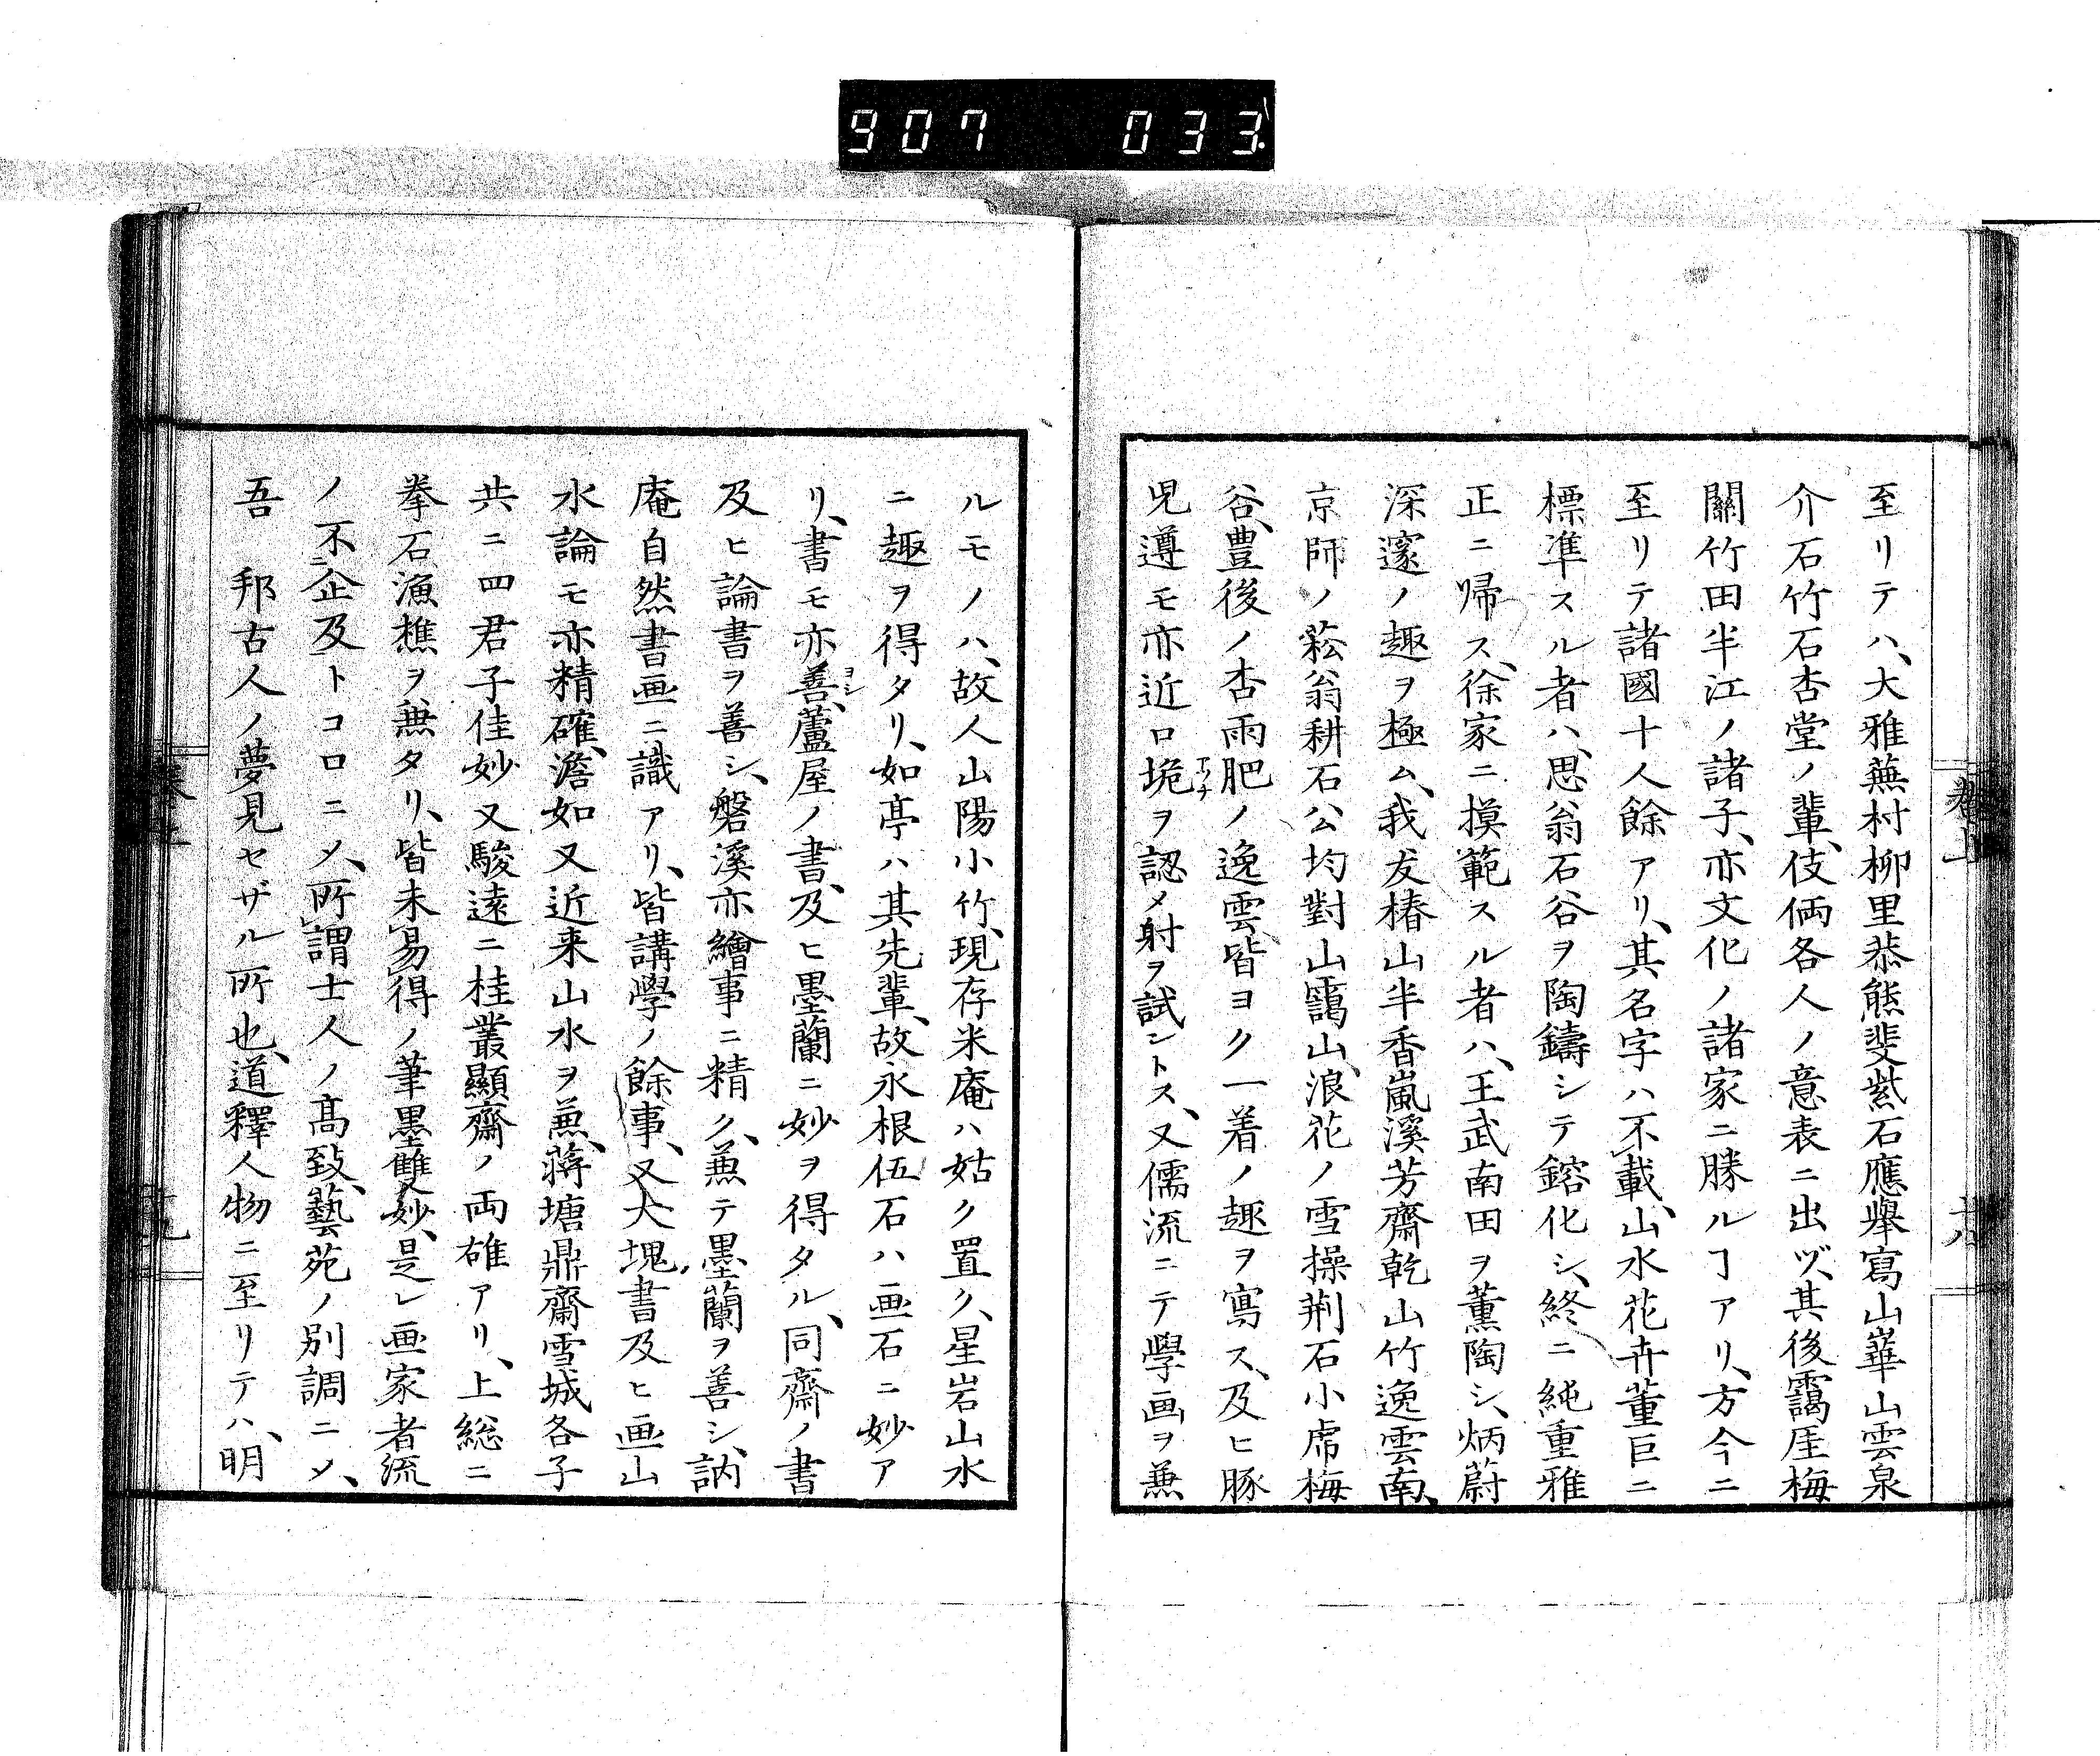 907 033
至リテハ、大雅蕪村柳里恭熊斐紫石應擧寫山崋山雲泉
介石竹石杏堂ノ輩、伎倆各人ノ意表ニ出ヅ、其後靄厓梅
關竹田半江ノ諸子、亦文化ノ諸家ニ勝ルヿアリ、方今ニ
至リテ諸國十人餘アリ、其名字ハ不載、山水花卉董巨ニ
標準スル者ハ、思翁石谷ヲ陶鑄シテ鎔化シ、終ニ純重雅
正ニ帰ス、徐家ニ摸範スル者ハ、王武南田ヲ薫陶シ、炳蔚
深邃ノ趣ヲ極ム、我友椿山半香嵐溪芳齋乾山竹逸雲南、
京師ノ菘翁耕石公均對山靄山、浪花ノ雪操荆石小席梅
谷、豊後ノ杏雨肥ノ逸雲、皆ヨク一着ノ趣ヲ寫ス、及ヒ豚
児遵モ亦近ロ垝ヲ認メ射ヲ試ントス、又儒流ニテ學画ヲ兼
ルモノハ、故人山陽小竹、現存米庵ハ姑ク置ク、星岩山水
ニ趣ヲ得タリ、如亭ハ其先輩、故永根伍石ハ画石ニ妙ア
リ、書モ亦善ヨシ、蘆屋ノ書、及ヒ墨蘭ニ妙ヲ得タル、同齋ノ書
及ヒ論書ヲ善シ、磐溪亦繪事ニ精ク、兼テ墨蘭ヲ善シ、訥
庵自然書画ニ識アリ、皆講學ノ餘事、又大塊書及ヒ画山
水論モ亦精確、澹如又近来山水ヲ兼、蒋塘鼎齋雪城各子
共ニ四君子佳妙又駿遠ニ桂叢顯齋ノ両雄アリ、上総ニ
拳石漁樵ヲ兼タリ、皆未易得ノ筆墨雙妙、是レ画家者流
ノ不ニ企及トコロニメ、所謂士人ノ高致、藝苑ノ別調ニメ、
吾 邦古人ノ夢見セザル所也、道釋人物ニ至リテハ、明